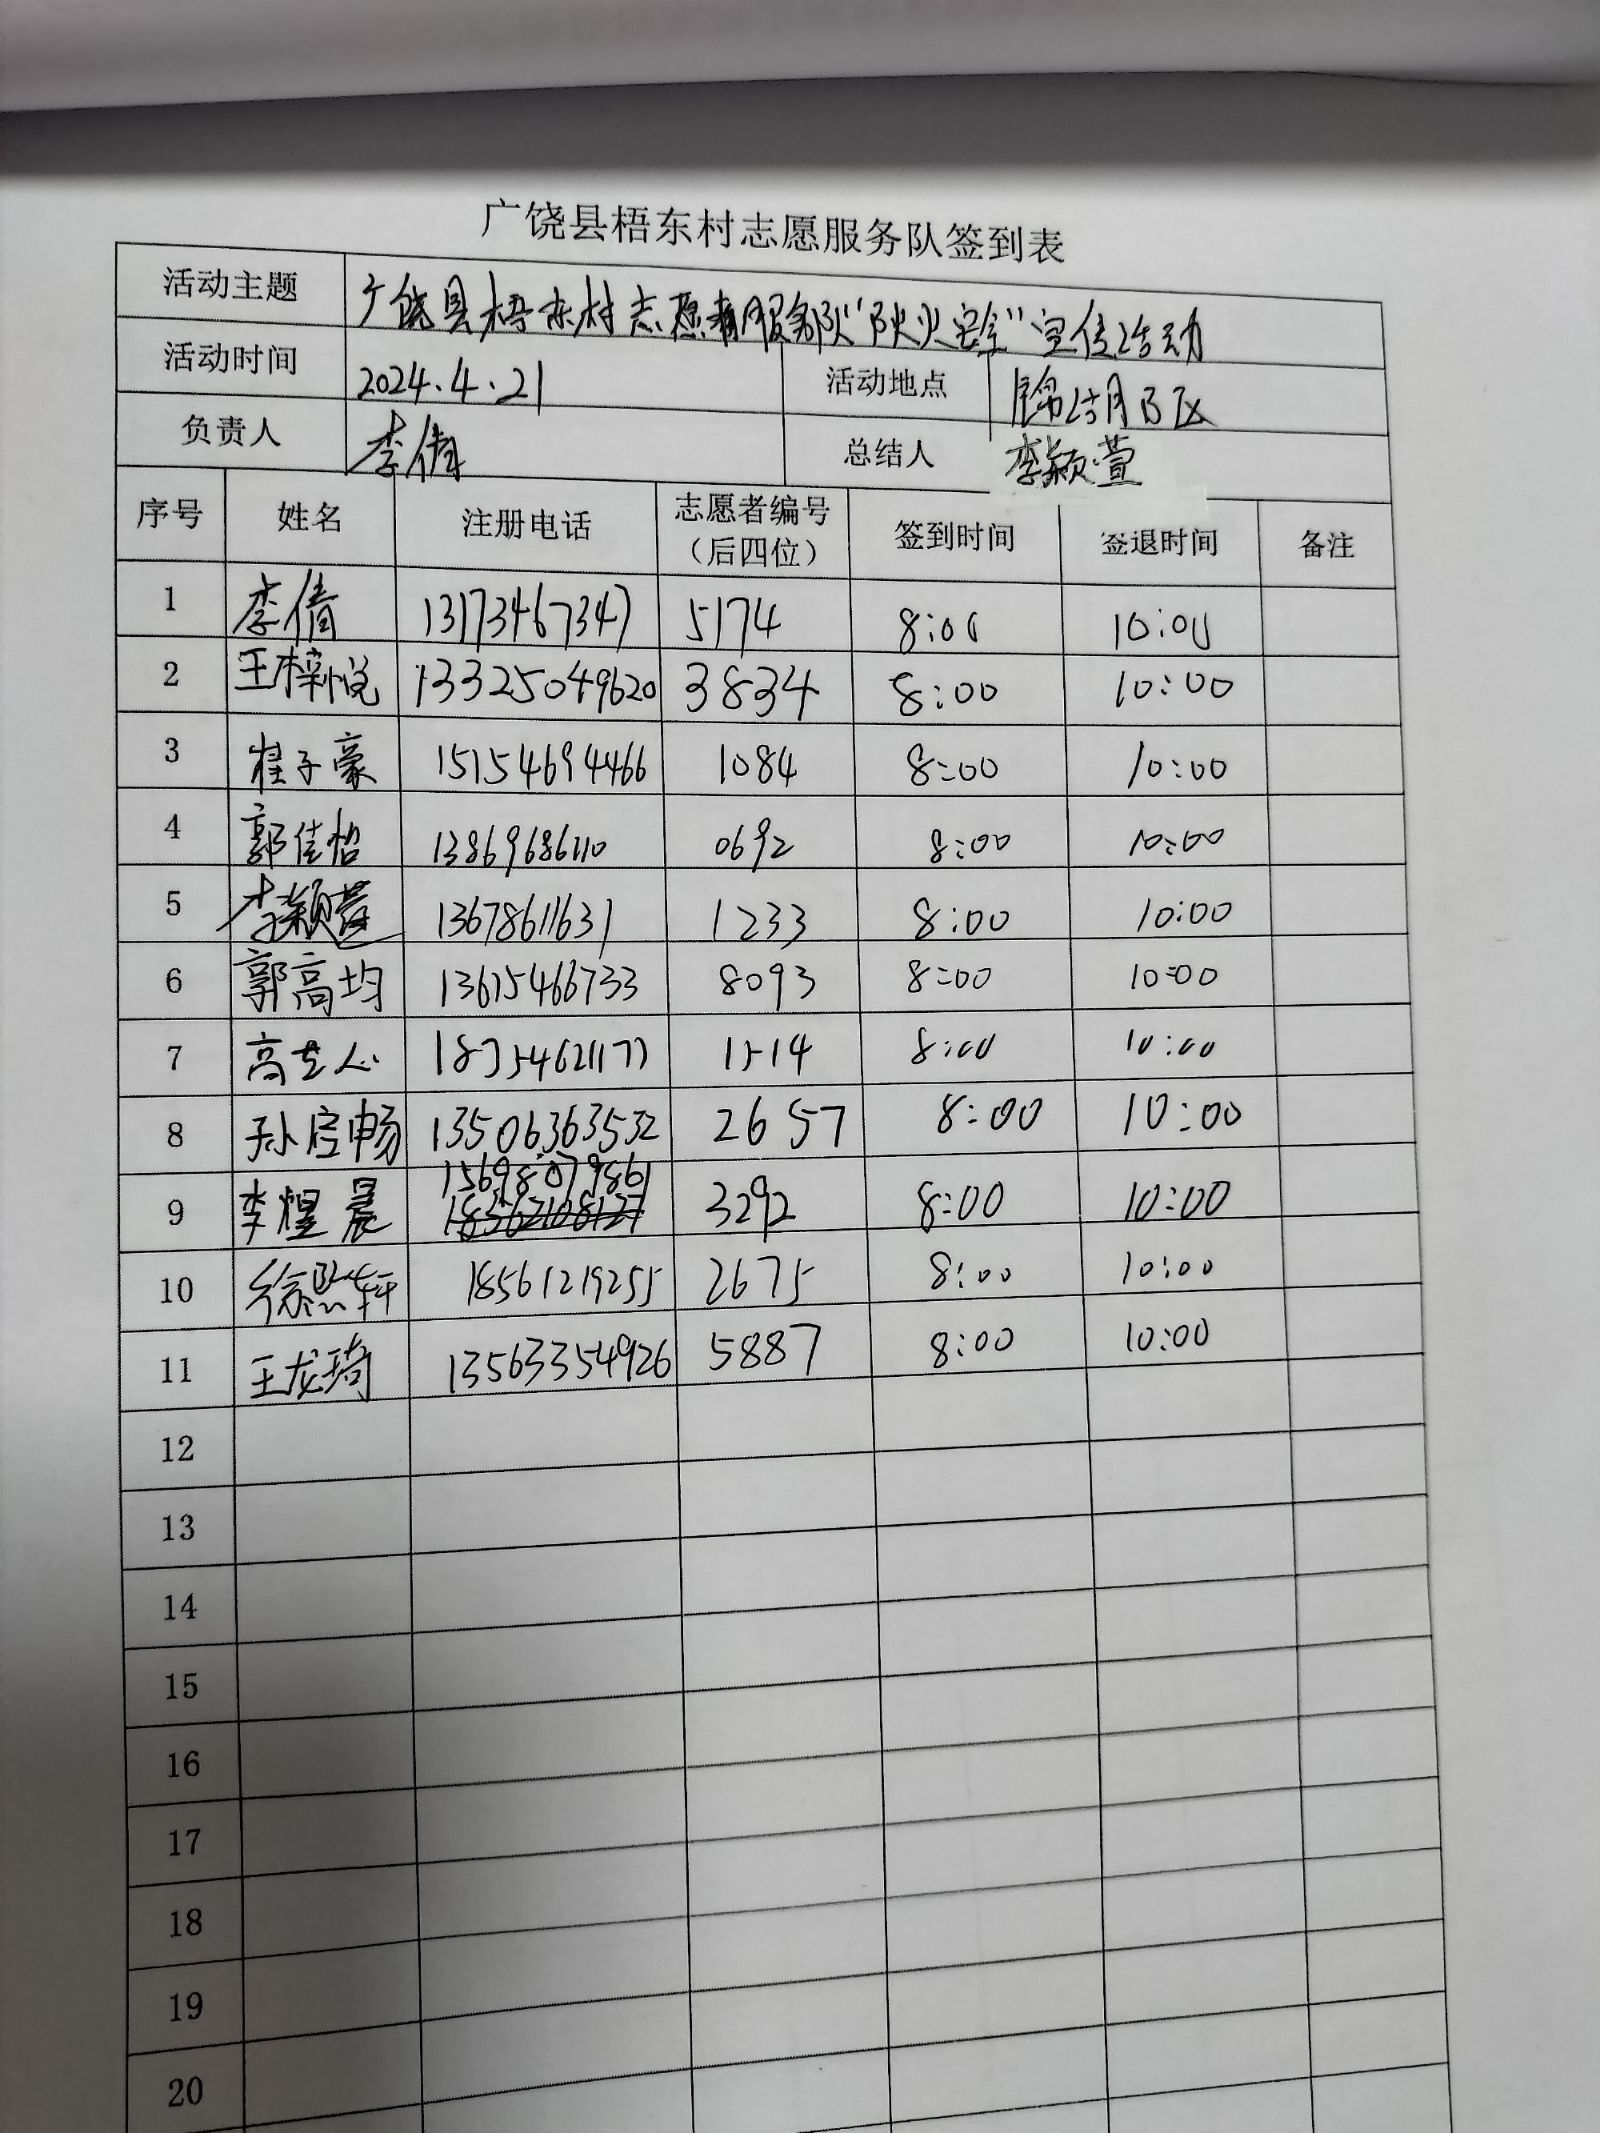 广饶县梧东村志愿服务队签到表
活动主题 广饶县梧东村志愿者服务队“防火安全”宣传活动
活动时间 2024.4.21 活动地点 锦湖月B区
负责人 李倩 总结人 李颖萱
序号 姓名 注册电话 志愿者编号（后四位） 签到时间 签退时间 备注
1 李倩 13173467347 5174 8:00 10:00
2 王梓悦 13325049620 3834 8:00 10:00
3 崔子豪 15154694466 1084 8:00 10:00
4 郭佳怡 13869686110 0692 8:00 10:00
5 李颖萱 13678611631 1233 8:00 10:00
6 郭高均 13615466733 8093 8:00 10:00
7 高艺心 1514 8:00 10:00
8 孙启畅 13506363532 2657 8:00 10:00
9 李煜晨 15698079861 3292 8:00 10:00
10 徐熙轩 18561219255 2675 8:00 10:00
11 王龙琦 13563354926 5887 8:00 10:00
12
13
14
15
16
17
18
19
20